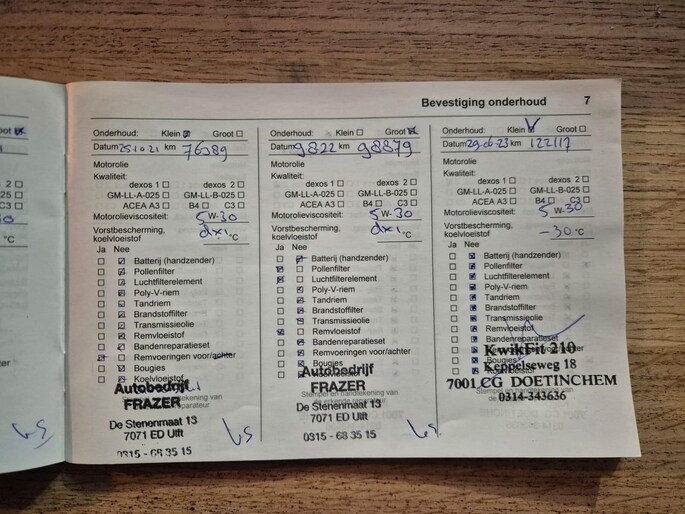 Bevestiging onderhoud 7
Groot
Onderhoud: Klein Groot
Datum 25.10.21 km 76389
Motorolie
Kwaliteit:
dexos 1 dexos 2
GM-LL-A-025 GM-LL-B-025
ACEA A3 B4 C3
Motorolieviscositeit: 5 W-30
Vorstbescherming,
koelvloeistof °C
Ja Nee
Batterij (handzender)
Pollenfilter
Luchtfilterelement
Poly-V-riem
Tandriem
Brandstoffilter
Transmissieolie
Remvloeistof
Bandenreparatieset
Remvoeringen voor/achter
Bougies
Koelvloeistof
Autobedrijf
FRAZER
De Stenenmaat 13
7071 ED Ulft
0315 - 68 35 15
Onderhoud: Klein Groot
Datum km 98879
Motorolie
Kwaliteit:
dexos 1 dexos 2
GM-LL-A-025 GM-LL-B-025
ACEA A3 B4 C3
Motorolieviscositeit: 5 W-30
Vorstbescherming,
koelvloeistof °C
Ja Nee
Batterij (handzender)
Pollenfilter
Luchtfilterelement
Poly-V-riem
Tandriem
Brandstoffilter
Transmissieolie
Remvloeistof
Bandenreparatieset
Remvoeringen voor/achter
Bougies
Autobedrijf
FRAZER
Stempel en handtekening van
De Stenenmaat 13
7071 ED Ulft
0315 - 68 35 15
Onderhoud: Klein Groot
Datum 29-06-23 km 122117
Motorolie
Kwaliteit:
dexos 1 dexos 2
GM-LL-A-025 GM-LL-B-025
ACEA A3 B4 C3
Motorolieviscositeit: 5 W-30
Vorstbescherming,
koelvloeistof -30 °C
Ja Nee
Batterij (handzender)
Pollenfilter
Luchtfilterelement
Poly-V-riem
Tandriem
Brandstoffilter
Transmissieolie
Remvloeistof
Bandenreparatieset
Bougies
KwikFit 210
Keppelseweg 18
7001 CG DOETINCHEM
0314-343636